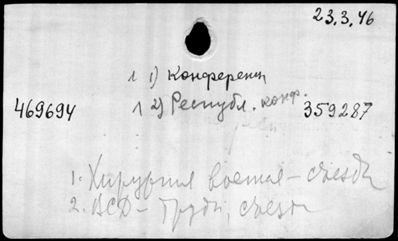 23.3.46
1 1) Конференц
469694 1 2) Республ. конф. 359287
1. Хирургия военая – съезды
2. ВСД – Труды, съезды